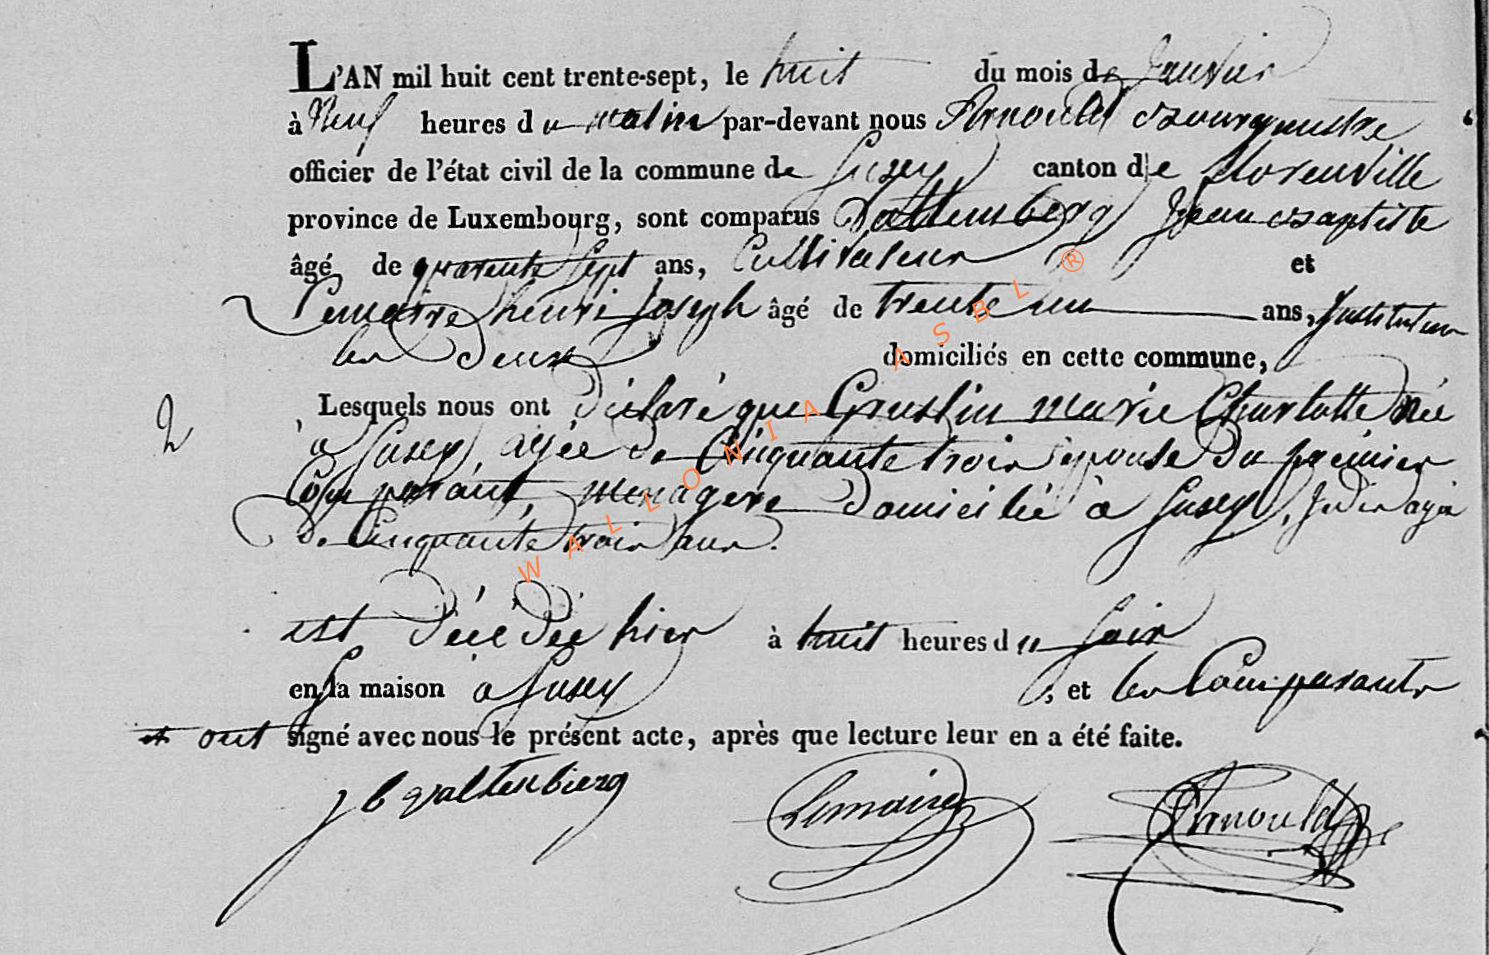 L'AN mil huit cent trente-sept, le huit du mois de Janvier
à Neuf heures du matin par-devant nous Arnould Bourgmestre
officier de l'état civil de la commune de Jusey canton de florenville
province de Luxembourg, sont comparus Valtenberg Jean Baptiste
âgé de quarente Sept ans, Cultivateur et
Lemaire henri Joseph âgé de trente un ans, Instituteur
les deux domiciliés en cette commune,
Lesquels nous ont déclaré que Gruslin Marie Charlotte née
à Jusey agée de Cinquante trois épouse du premier
Comparant, menagere domiciliée à Jusey,
de Cinquante trois ans.
est décédée hier à huit heures du soir
en sa maison à Jusey, et les Comparants
2
et ont signé avec nous le présent acte, après que lecture leur en a été faite.
j b valtenbierg Lemaire Arnould
WALLONIA ASBL ®